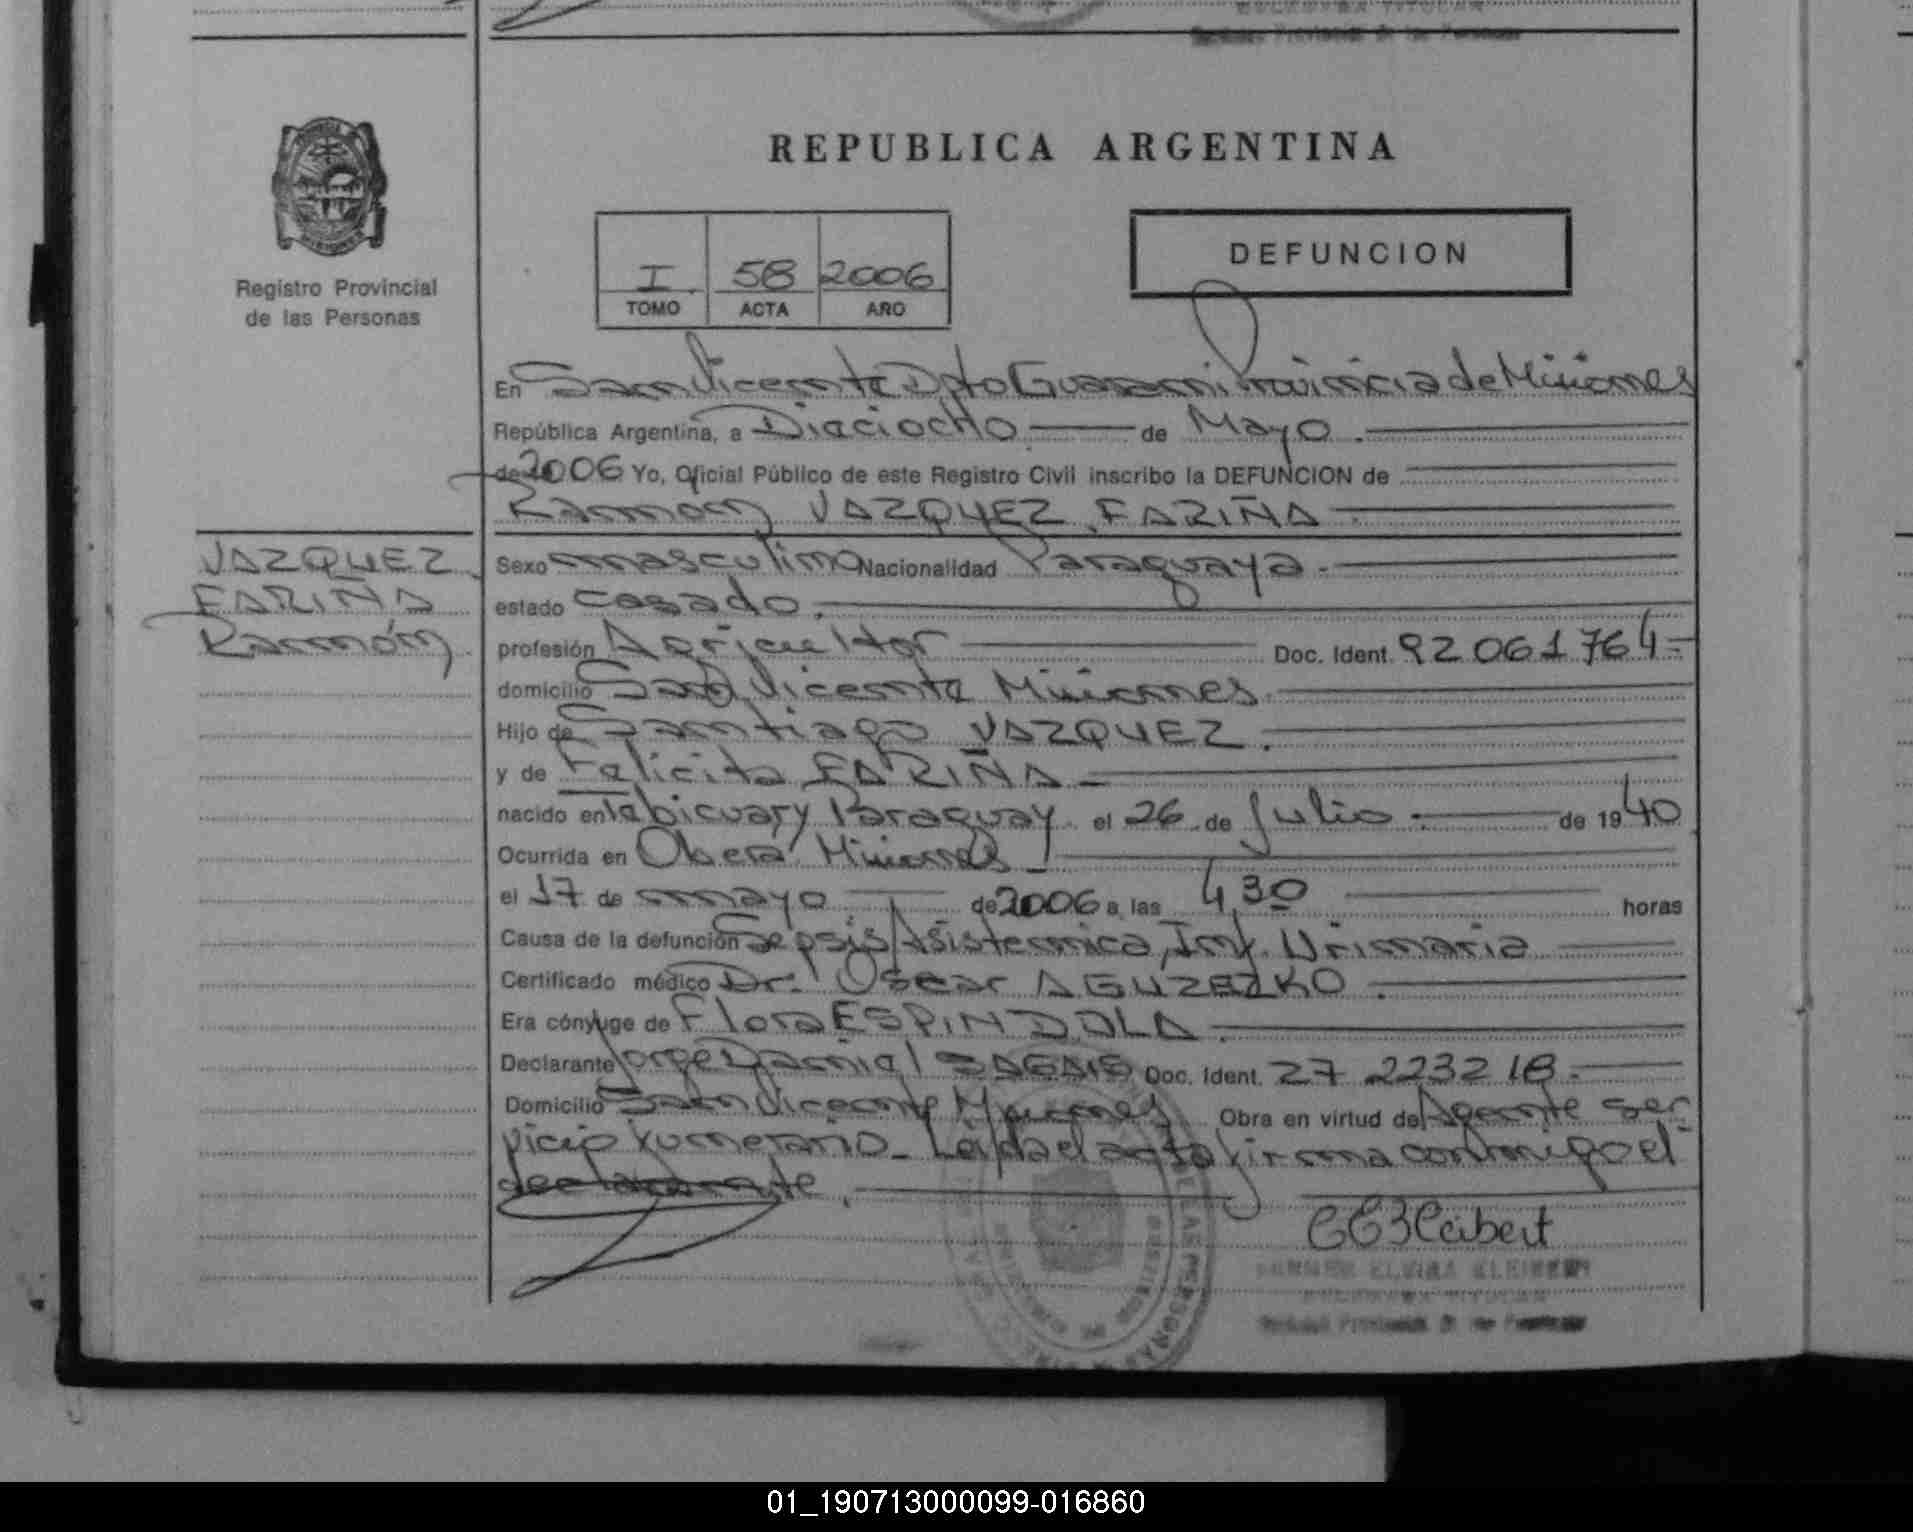 REPUBLICA ARGENTINA
Registro Provincial
de las Personas
I 58 2006
TOMO ACTA AÑO
DEFUNCION
En San Vicente Dpto Guarani Provincia de Misiones
República Argentina, a Dieciocho de Mayo.
de 2006 Yo, Oficial Público de este Registro Civil inscribo la DEFUNCION de
Ramon VAZQUEZ FARIÑA
VAZQUEZ
FARIÑA
Ramón
Sexo masculino Nacionalidad Paraguaya.
estado casado.
profesión Agricultor Doc. Ident. 92 061 764
domicilio San Vicente Misiones.
Hijo de Santiago VAZQUEZ.
y de Felicita FARIÑA
nacido en Tebicuary Paraguay el 26 de Julio de 1940
Ocurrida en Obera Misiones
el 17 de mayo de 2006 a las 4,30 horas
Causa de la defunción Sepsis Asistemica, Inf. Urinaria
Certificado médico Dr. Oscar
Era cónyuge de Flora ESPINDOLA.
Declarante Jorge Daniel Doc. Ident. 27 223218.
Domicilio San Vicente Misiones Obra en virtud de Agente ser
vicio funerario. Leida el acta firma conmigo el
declarante.
ELVIRA
01_190713000099-016860